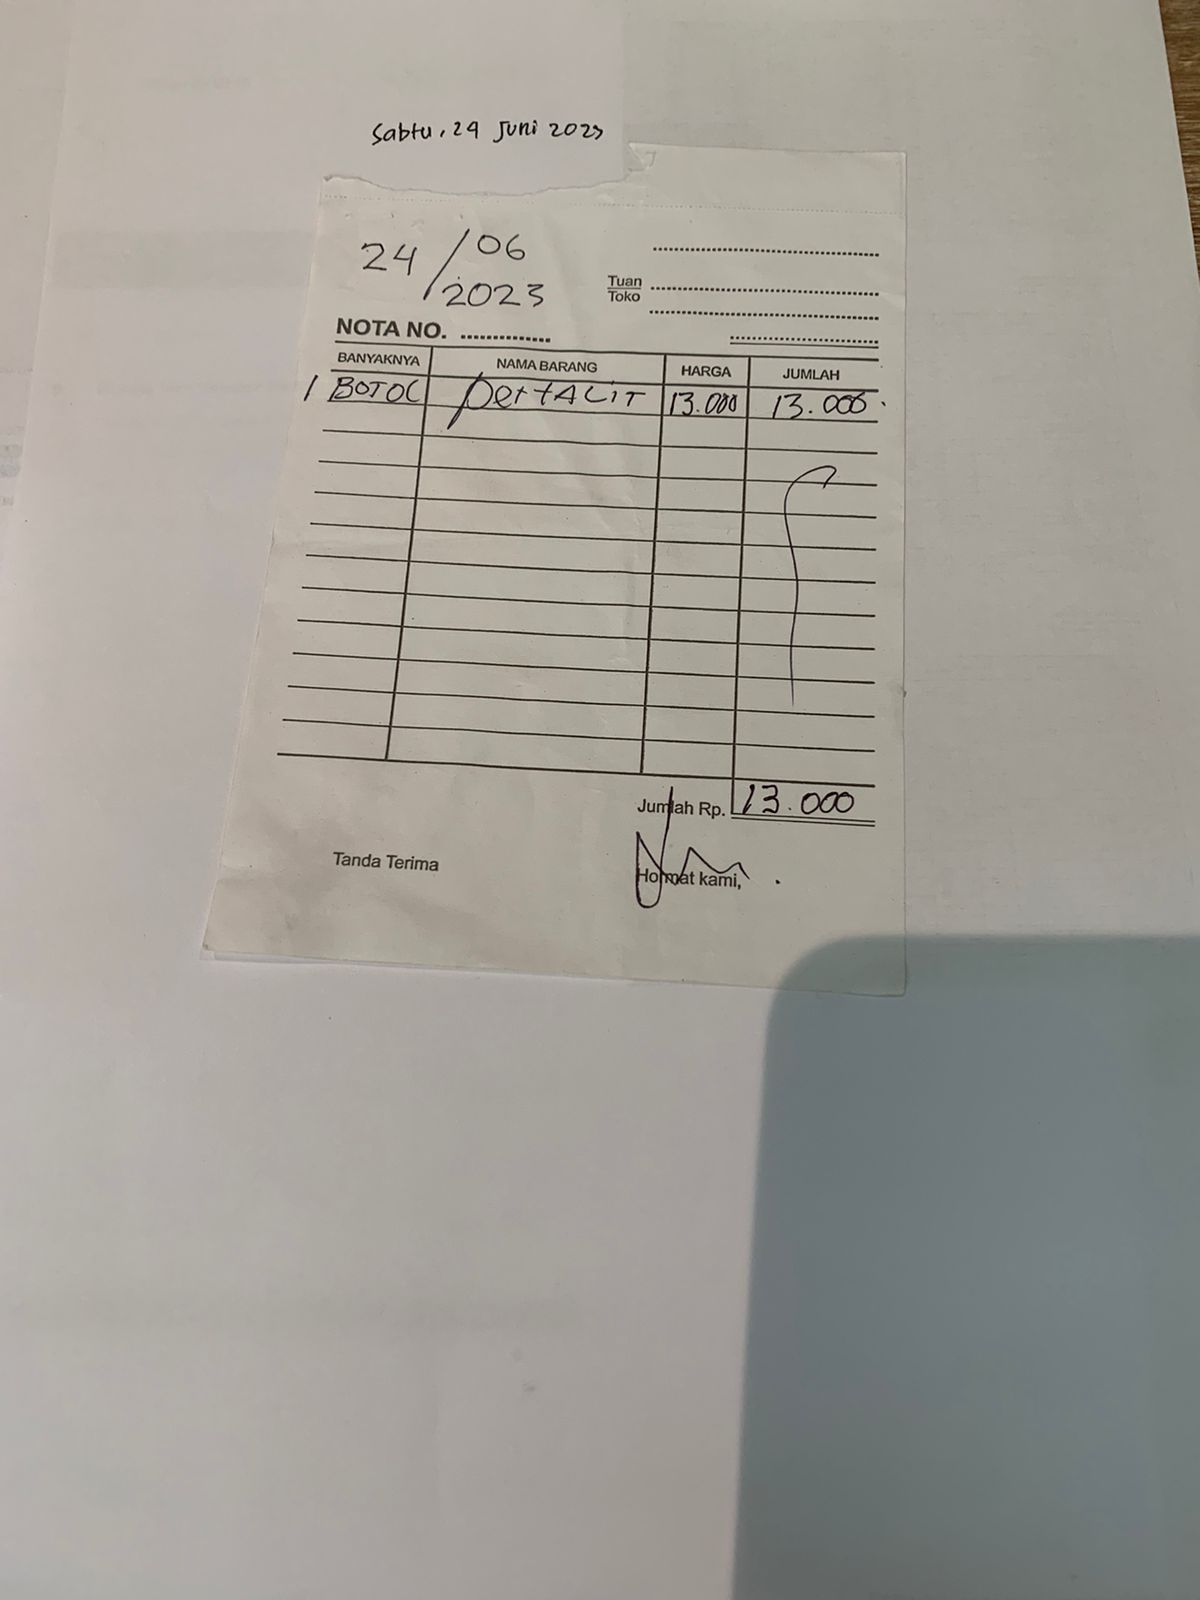 Sabtu, 24 Juni 2023
24/06
2023
Tuan
Toko
NOTA NO. ...............
BANYAKNYA NAMA BARANG HARGA JUMLAH
1 BOTOL pertALiT 13.000 13.000.
Jumlah Rp. 13.000
Tanda Terima Hormat kami,